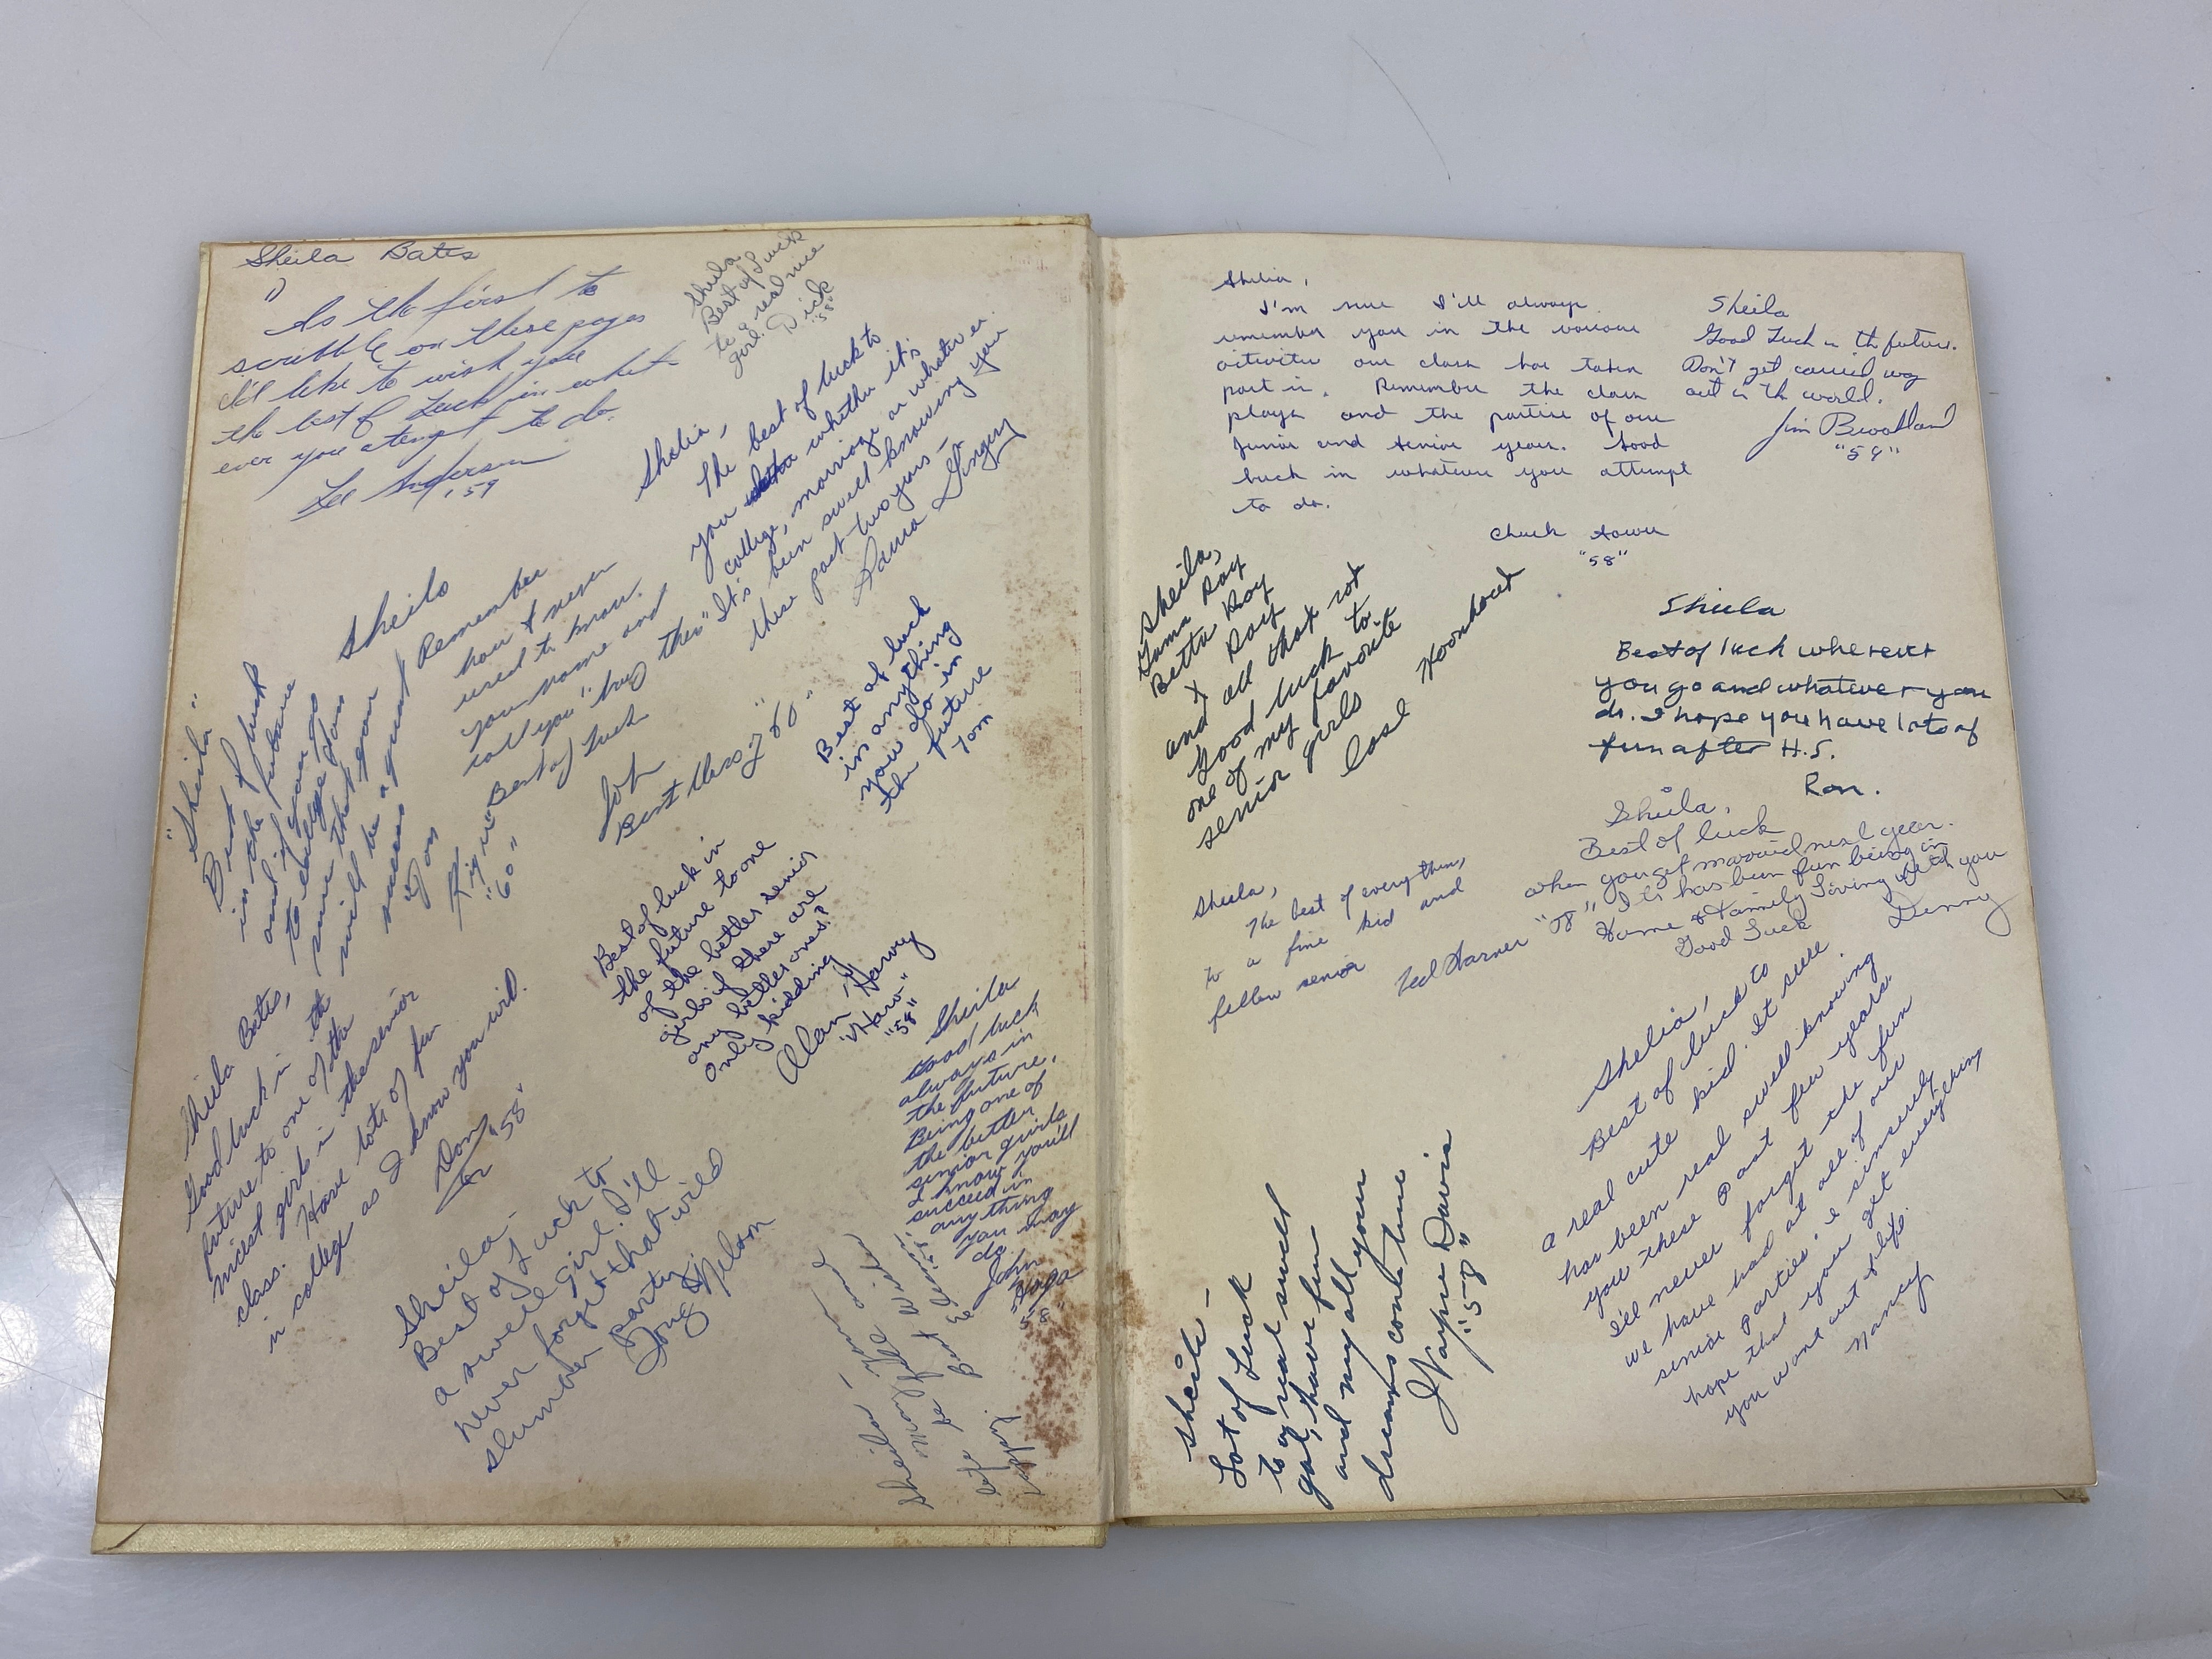 Sheila Bates
1)
As the first to
scribble on these pages
I'd like to wish you
the best of Luck in what
ever you atempt to do.
Lee Anderson
'59
Sheila
Best of Luck
to a real nice
girl.
Dick
"58"
Shelia,
The best of luck to
you whether it's
college, marriage or whatever.
It's been swell knowing you
these past two years—
Sheila
Remember
how I never
used to know
your name and
call you "hey there"
Best of Luck
Bob
Best Class of "60"
Best of luck
in anything
you do in
the future
Tom
"Sheila"
Best of luck
in the future
and if you go
to college I'm
sure that you
will be a great
success
"60"
Best of luck in
the future to one
of the better senior
girls if there are
any better ones?
Only kidding
Alan Harvey
"Harv"
"58"
Sheila Bates,
Good luck in the
future to one of the
nicest girls in the senior
class. Have lots of fun
in college as I know you will.
Don
"58"
Sheila-
Best of Luck to
a swell girl. I'll
never forget that wild
slumber party
Doug Nelson
Sheila
Good luck
always in
the future.
Being one of
the better
senior girls
I know you'll
succeed in
anything
you may
do
John
"58"
Sheila
Best Wishes
life be
happy.
Shelia,
I'm sure I'll always
remember you in the various
activities our class has taken
part in. Remember the class
plays and the parties of our
Junior and Senior years. Good
luck in whatever you attempt
to do.
Chuck
"58"
Sheila
Good Luck in the future.
Don't get carried way
out in the world.
Jim
Sheila,
Gama Ray
Betta Ray
X Ray
and all that rot
Good luck to
one of my favorite
senior girls
Sheila
Best of luck wherever
you go and whatever you
do. I hope you have lots of
fun after H.S.
Ron.
Sheila,
The best of everything
to a fine kid and
fellow senior
Ted Harner "58"
Sheila,
Best of luck
when you get married next year.
It has been fun being in
Home & Family Living with you
Good Luck
Denny
Shelia,
Best of luck to
a real cute kid. It sure
has been real swell knowing
you these past few years.
I'll never forget the fun
we have had at all of our
senior parties. I sincerely
hope that you get everything
you want out of life.
Nancy
Sheila-
Lot of Luck
to a real swell
gal, have fun
and may all your
dreams come true
Wayne Davis
"58"